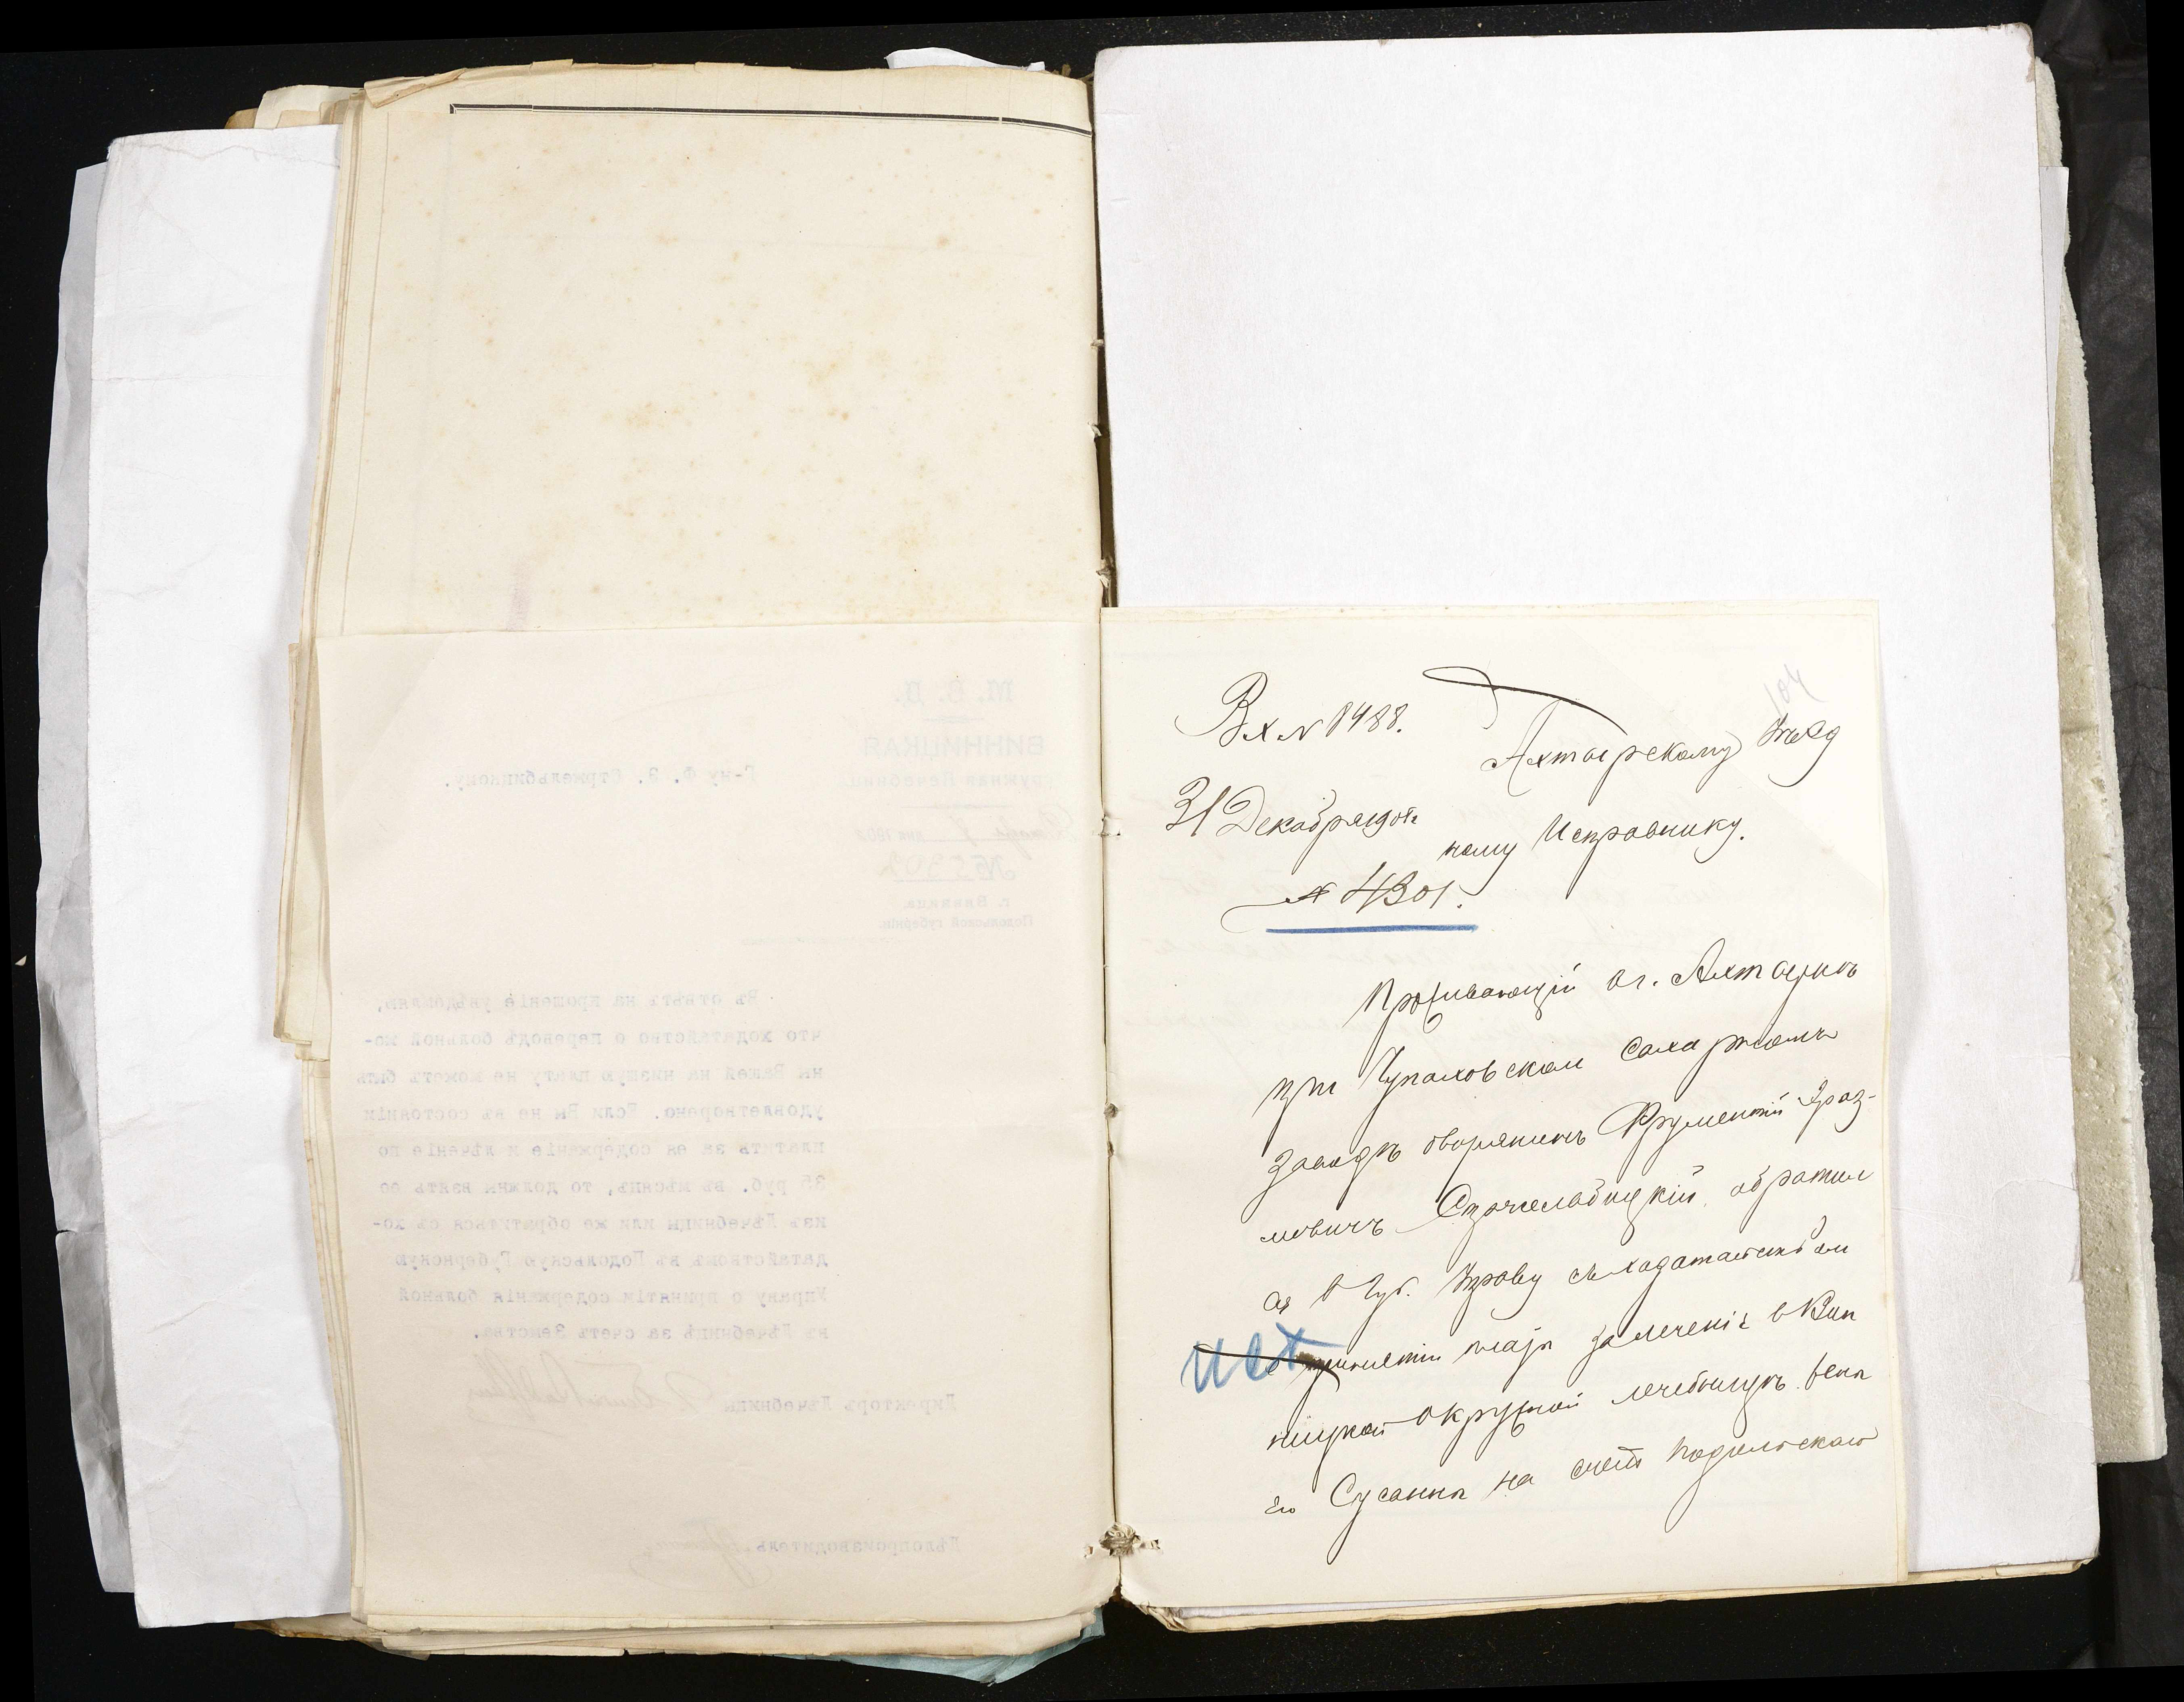 104
Вх № 8488.
Ахтырскому Уѣзд
31 Декабря 1907г
ному Исправнику.
№ 4301.
Проживающій в г. Ахтыркѣ
при Чупаховском Сахарномъ
Заводѣ дворянинъ Фрументій Эраз-
мовичъ Стржельбицкій обратил
ся в Губ. Управу съ ходатайством
о принятіи платы за леченіе в Вин
ницкой Окружной лечебницѣ жены
его Сусанны на счетъ Подольскаго
исх
М. В. Д.
ВИННИЦКАЯ
Окружная Лечебница
дня 190
№
г. Винница
Подольской губерніи.
Г-ну Ф. Э. Стржельбицкому.
Въ отвѣтъ на прошеніе увѣдомляю,
что ходатайство о переводѣ больной же-
ны Вашей на низшую плату не можетъ быть
удовлетворено. Если Вы не въ состояніи
платить за ея содержаніе и лѣченіе по
35 руб. въ мѣсяцъ, то должны взять ее
изъ Лѣчебницы или же обратиться съ хо-
датайствомъ въ Подольскую Губернскую
Управу о принятіи содержанія больной
въ Лѣчебницѣ за счетъ Земства.
Директоръ Лѣчебницы
Дѣлопроизводитель